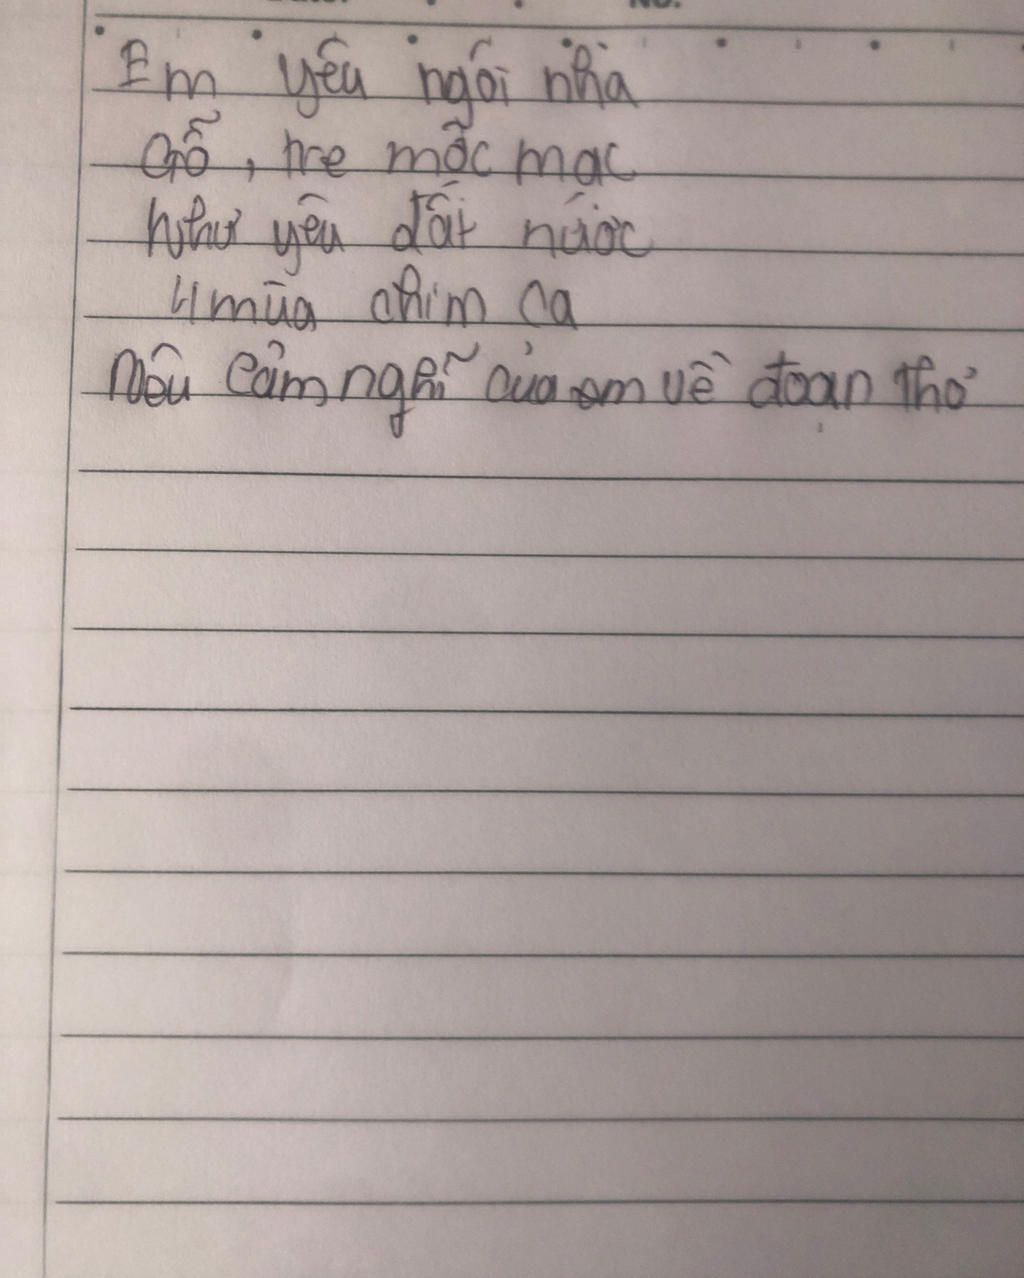 Em yêu ngôi nhà
Gỗ, tre mộc mạc
Như yêu đất nước
4 mùa chim ca
Nêu cảm nghĩ của em về đoạn thơ